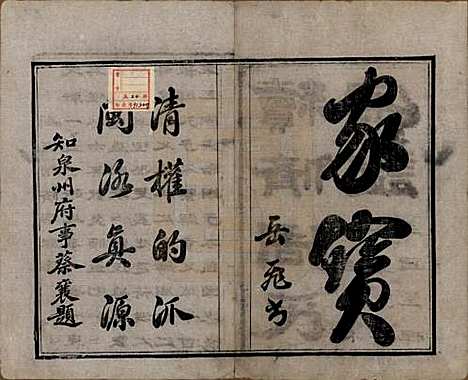 家寶
岳飛書
清權的派
閩泳真源
知泉州府事蔡襄題